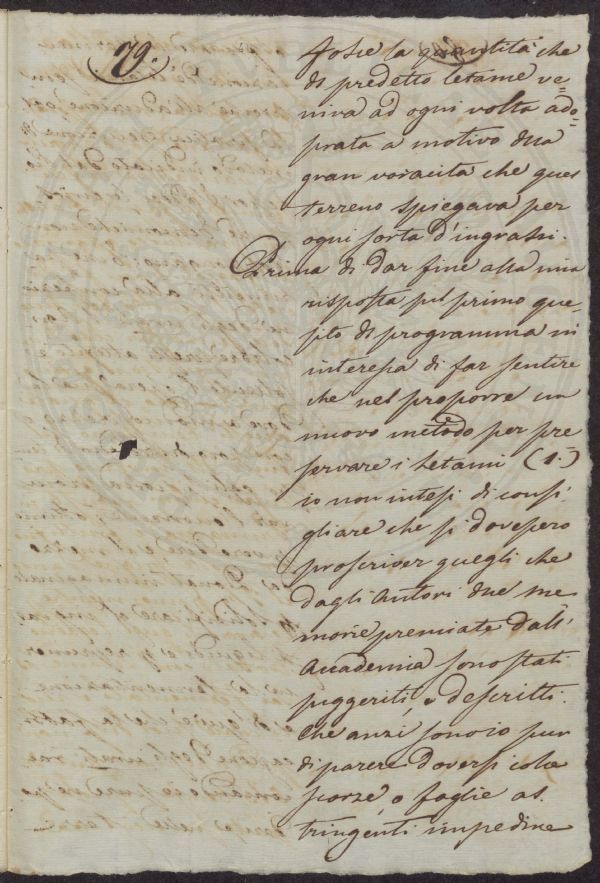 79.
fosse la quantità che
di predetto letame ve=
niva ad ogni volta ado=
prata a motivo della
gran voracità che ques
terreno spiegava per
ogni sorta d'ingrassi.
Prima di dar fine alla mia
risposta pel primo que=
sito di programma m
interessa di far sentire
che nel proporre un
nuovo metodo per pre
servare i letami (1.)
io non intesi di consi=
gliare che si dovessero
proscriver quegli che
dagli Autori due me
morie premiate dall'
Accademia sono stati
suggeriti, e descritti.
Che anzi sono io pur
di parere doversi colle
scorze, o foglie as.
tringenti impedire